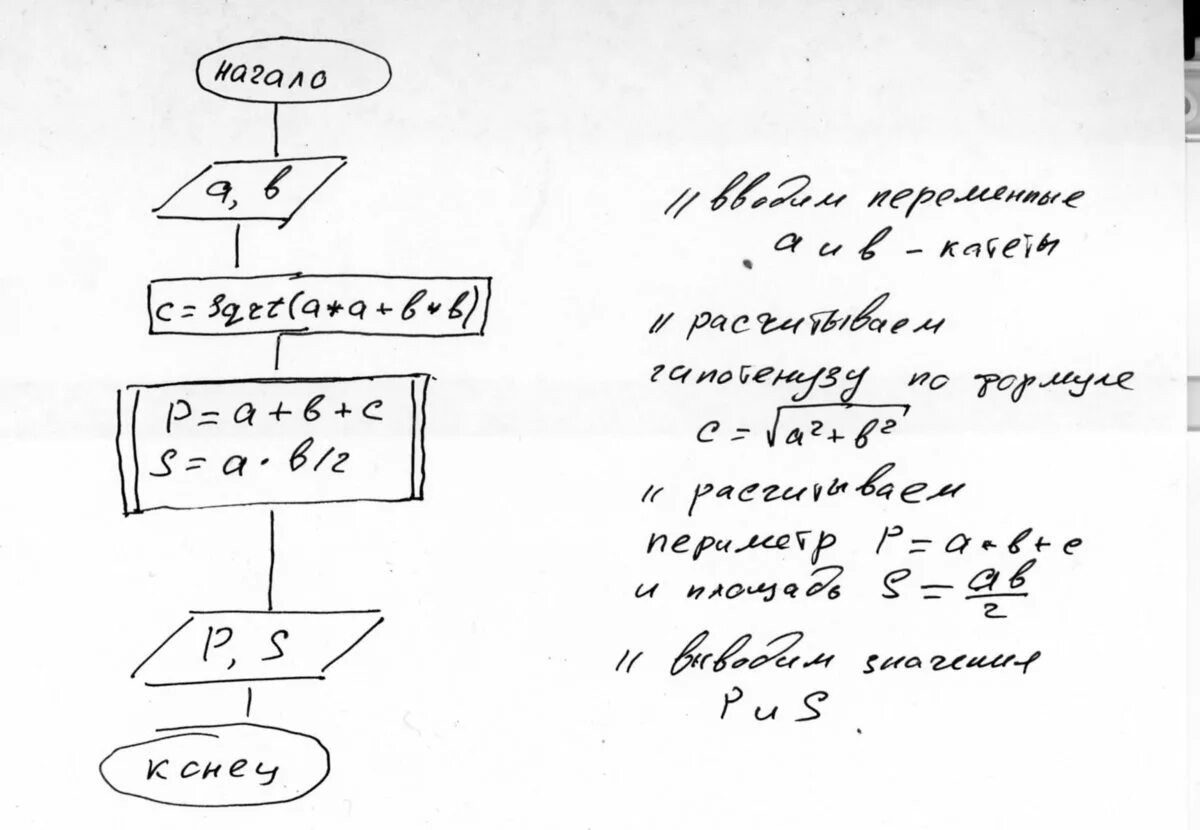 начало
a, в
c = sqrt(a*a + в*в)
P = a + в + c
S = a · в/2
P, S
конец
// вводим переменные
a и в - катеты
// расчитываем
гипотенузу по формуле
c = √a² + в²
// расчитываем
периметр P = a + в + c
и площадь S = aв/2
// выводим значения
P и S